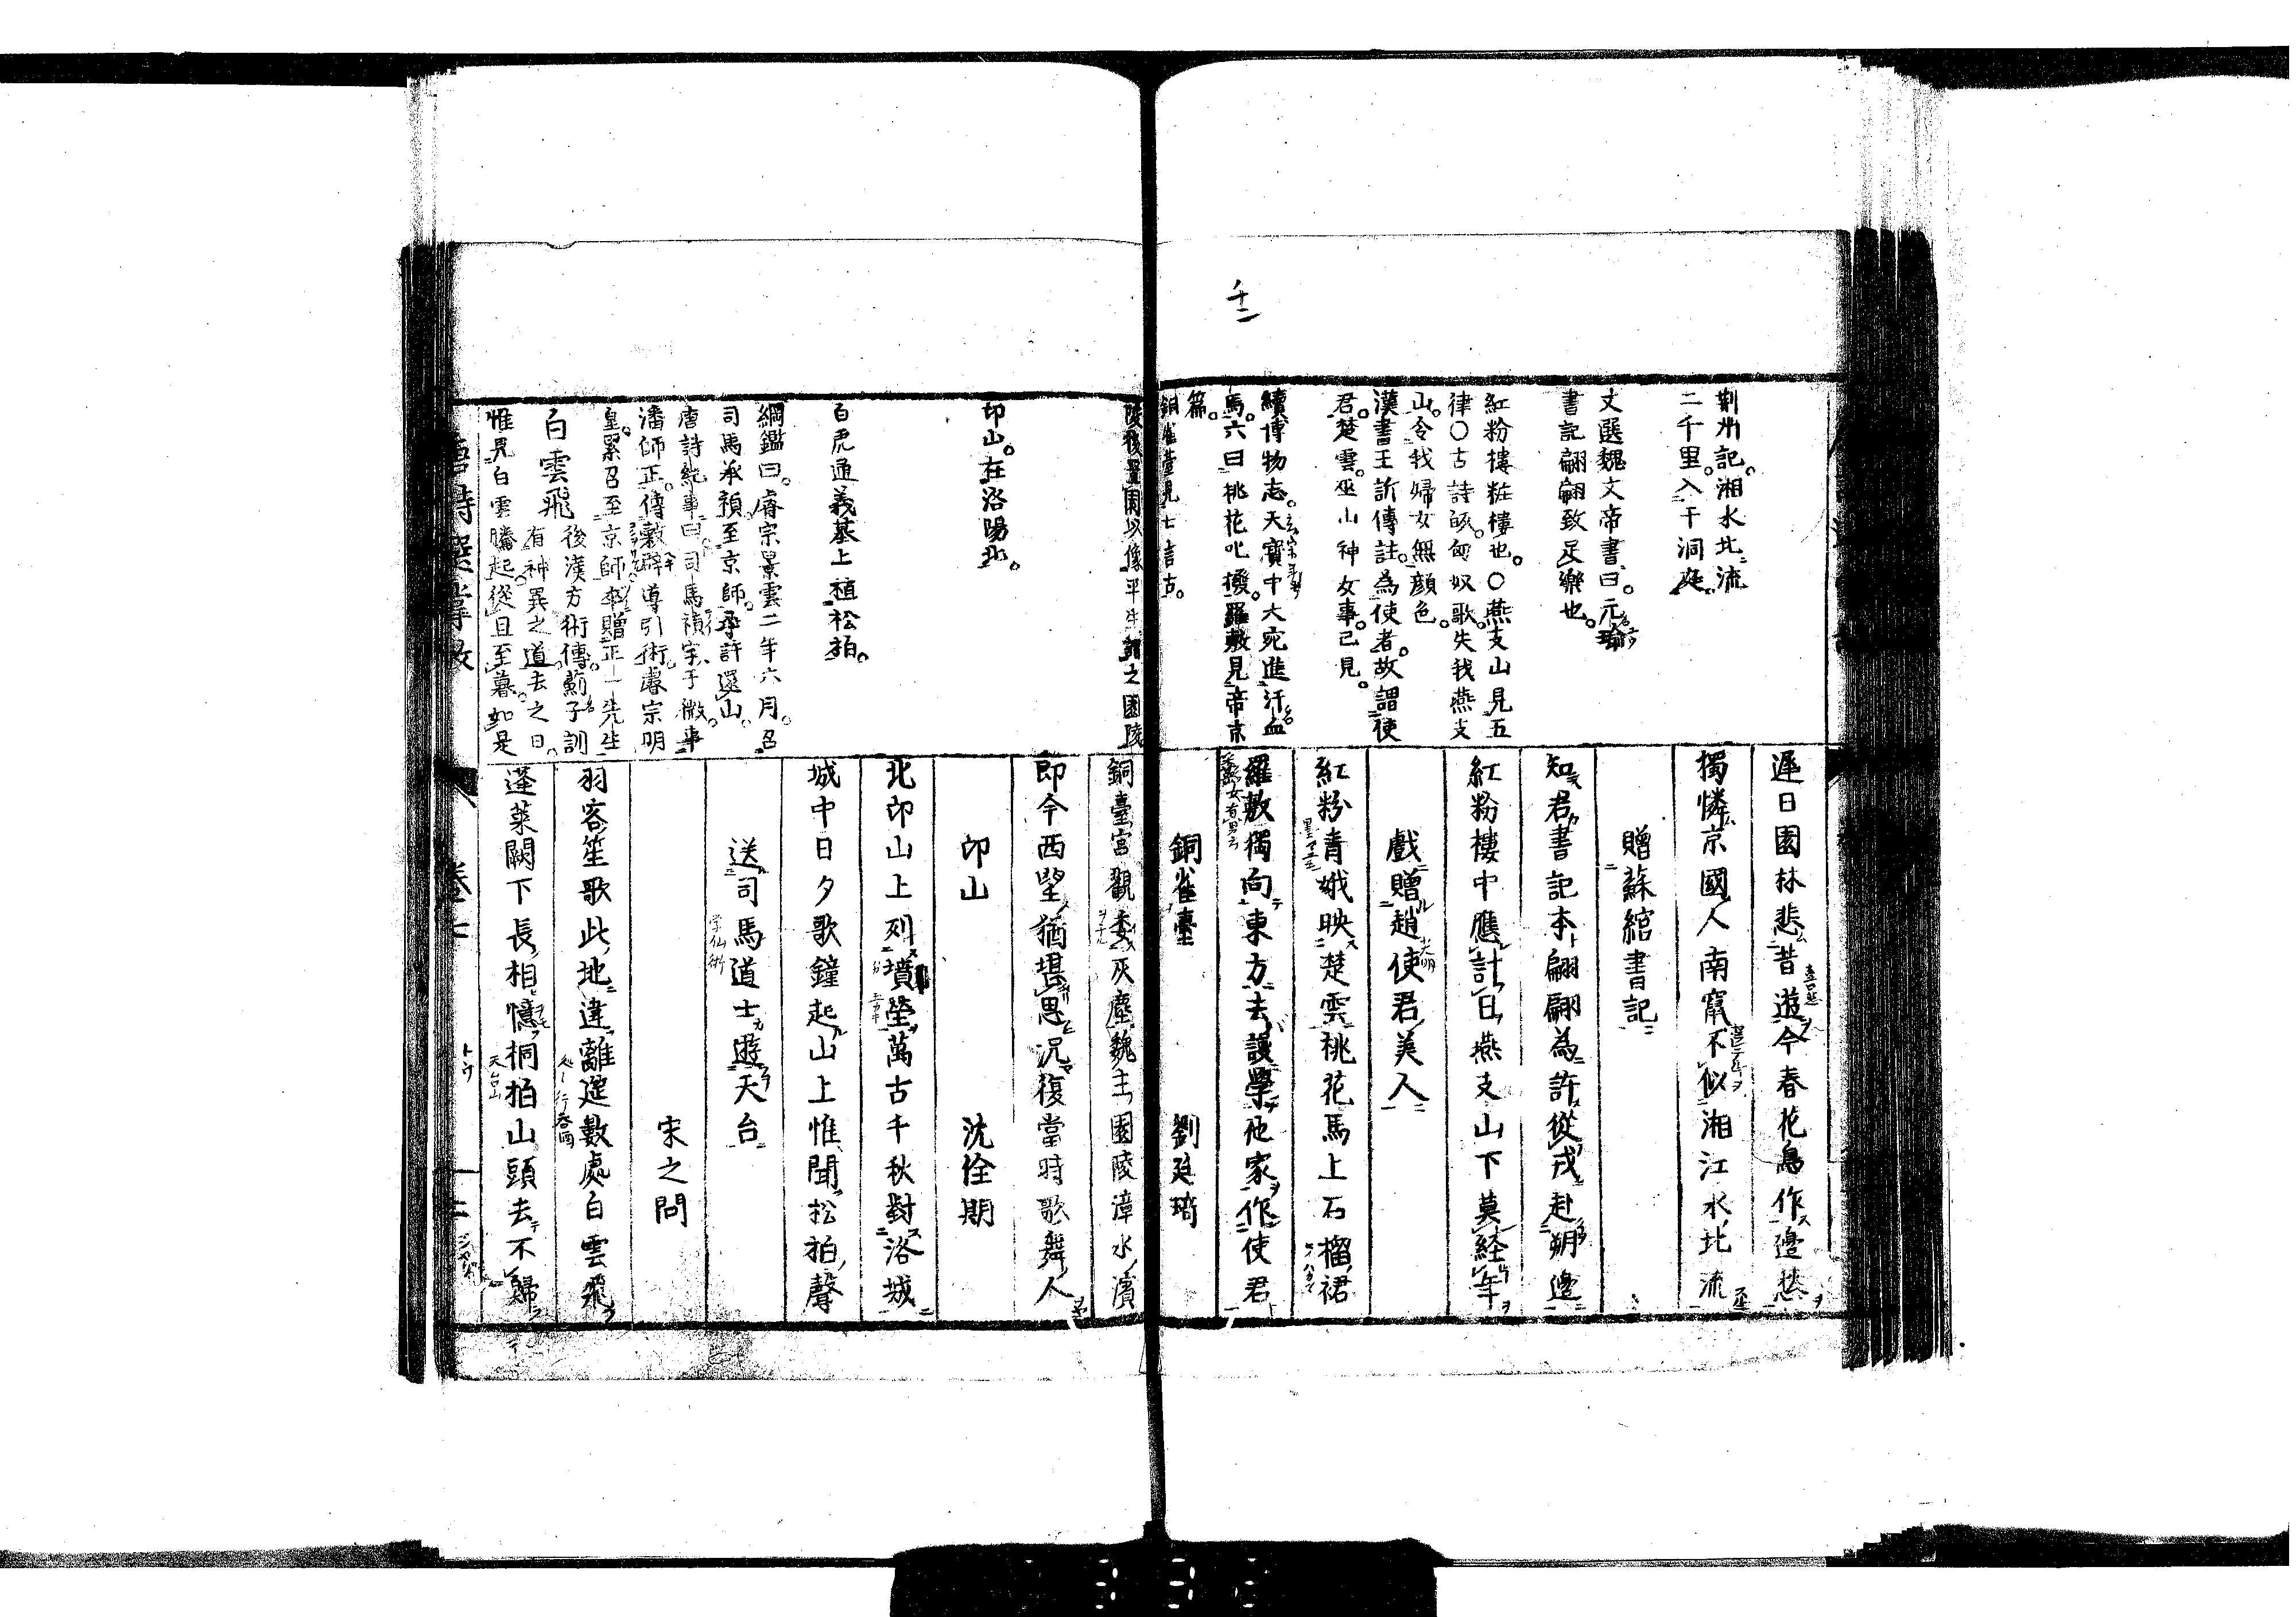 十二
荆州記。湘水北流
二千里。入于洞庭。
文選魏文帝書曰。元瑜
書記翩翩致足樂也。
紅粉樓粧樓也。○燕支山見五
律○古詩紀。匈奴歌。失我燕支
山。令我婦女無顔色。
漢書王訢傳註。為使者。故謂使
君。楚雲。巫山神女事。已見。
續博物志。天寶中大宛進汗血
馬。六曰桃花叱撥。羅敷見帝京
篇。
銅雀臺見七言古。
遲日園林悲昔遊今春花鳥作邊愁
獨憐京國人南竄不似湘江水北流
贈蘇綰書記
知君書記本翩翩為許從戎赴朔邊
紅粉樓中應計日燕支山下莫経年
戲贈趙使君美人
紅粉青娥映楚雲桃花馬上石榴裙
羅敷獨向東方去謾學他家作使君
銅雀臺 劉廷琦
陵
以像平生
之園陵
卬山。在洛陽北。
白虎通義墓上植松柏。
綱鑑曰。睿宗景雲二年六月。召
司馬承禎至京師。尋許還山。
唐詩紀事曰。司馬禎字子微。事
潘師正。傳辟穀導引術。睿宗明
皇。累召至京師。卒贈正一先生
白雲飛 後漢方術傳。薊子訓
有神異之道。去之日。
惟見白雲騰起。從旦至暮。如是
銅臺宮觀委灰塵魏主園陵漳水濱
即今西望猶堪思況復當時歌舞人
卬山 沈佺期
北卬山上列墳塋萬古千秋對洛城
城中日夕歌鐘起山上惟聞松柏聲
送司馬道士遊天台
宋之問
羽客笙歌此地違離筵數處白雲飛
蓬萊闕下長相憶桐柏山頭去不歸
唐詩選
卷七